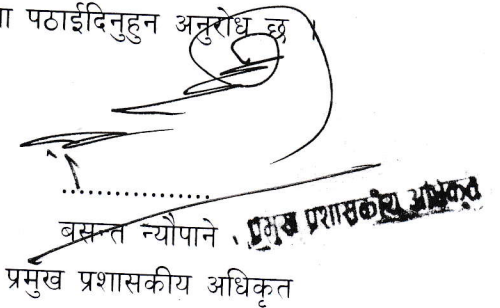 ा पठाईदिनुहुन अनुरोध छ ।
....................
बसन्त न्यौपाने प्रमुख प्रशासकीय अधिकृत
प्रमुख प्रशासकीय अधिकृत